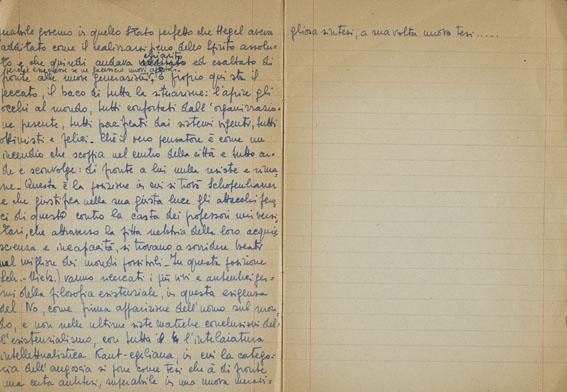 nabile governo in quello Stato perfetto che Hegel aveva
additato come il realizzarsi pieno dello Spirito assolu-
to e che quindi andava chiarito ed esaltato di
fronte alle nuove generazioni. È proprio qui sta il
peccato, il baco di tutta la situazione: l'aprire gli
occhi al mondo, tutti confortati dall'organizzazio-
ne presente, tutti pacificati dai sistemi vigenti, tutti
ottimisti e felici. Chè il vero pensatore è come un
incendio che scoppia nel centro della città e tutto ar-
de e sconvolge: di fronte a lui nulla resiste e rima-
ne. Questa è la posizione in cui si trovò Schopenhauer
e che giustifica nella sua giusta luce gli attacchi fero-
ci di questo contro la casta dei professori universi-
tari, che attraverso la fitta nebbia della loro acquie-
scenza e incapacità, si trovano a sorridere beati
nel migliore dei mondi possibili. In questa posizione
vanno ricercati i più vivi e autentici ger-
mi della filosofia esistenziale, in questa esigenza
del No, come prima affermazione dell'uomo sul mon-
do, e non nelle ultime sistematiche conclusioni del-
l'esistenzialismo, con tutta l'intelaiatura
intellettualistica Kant-egeliana, in cui la catego-
ria dell'angoscia si pone come tesi che à di fronte
una certa antitesi, superabile in una nuova meravi-
gliosa sintesi, a sua volta nuova tesi.....